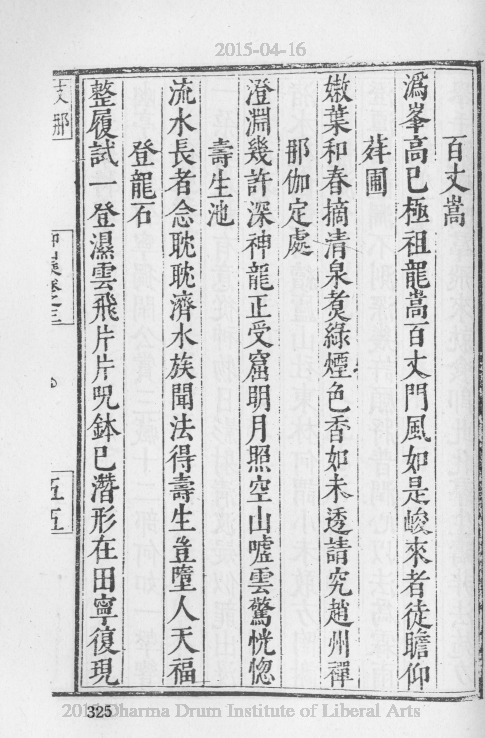 2015-04-16
百丈嵩
溈峯高已極祖龍嵩百丈門風如是峻來者徒瞻仰
茻圃
嫩葉和春摘清泉煑綠煙色香如未透請究趙州禪
那伽定處
澄淵幾許深神龍正受窟明月照空山噓雲驚恍惚
壽生池
流水長者念耽耽濟水族聞法得壽生豈墮人天福
登龍石
整履試一登濕雲飛片片咒鉢已潛形在田寧復現
卷之三
五五
325
Dharma Drum Institute of Liberal Arts